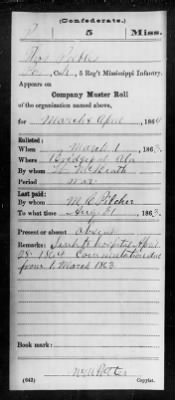 (Confederate.)
P 5 Miss.
Co. , 5 Reg't Mississippi Infantry.
Appears on
Company Muster Roll
of the organization named above,
for March & April, 1864
Enlisted:
When March 1, 1863.
Where Bridgeport Ala
By whom
Period war
Last paid:
By whom M. R. Pilcher
To what time Aug 31, 1863.
Present or absent absent
Remarks: Sent to hospital April
1864 Commutation due
from 1 March 1863
Book mark:
(642) Copyist.